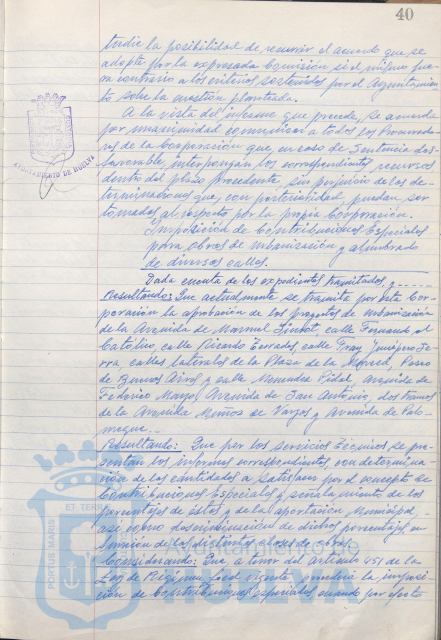 40
tudie la posibilidad de recurrir el acuerdo que se
adopte por la expresada Comisión si el mismo fue-
ra contrario a los criterios sostenidos por el Ayuntamien-
to sobre la cuestión planteada.
A la vista del informe que precede, se acuerda
por unanimidad comunicar a todos los Procurado-
res de la Corporación que, en caso de Sentencia des-
favorable, interpongan los correspondientes recursos
dentro del plazo procedente, sin perjuicio de las de-
terminaciones que, con posterioridad, puedan ser
tomadas al respecto por la propia Corporación.
Imposición de Contribuciones Especiales
para obras de urbanización y alumbrado
de diversas calles.
Dada cuenta de los expedientes tramitados y
Resultando: Que actualmente se tramita por esta Cor-
poración la aprobación de los proyectos de urbanización
de la Avenida de Manuel Siurot, calle Fernando el
Católico, calle Ricardo Terrades, calle Fray Junípero Se-
rra, calles laterales de la Plaza de la Merced, Paseo
de Buenos Aires y calle Menendez Pidal, avenida de
Federico Mayo, Avenida de San Antonio, dos tramos
de la Avenida Muñoz de Vargas y Avenida de Palo-
meque.
Resultando: Que por los servicios Técnicos se pre-
sentan los informes correspondientes, con determina-
ción de las cantidades a satisfacer por el concepto de
Contribuciones Especiales y señalamiento de los
porcentajes de éstas y de la aportación Municipal,
así como discriminación de dichos porcentajes en
función de las distintas clases de obras.
Considerando: Que a tenor del Artículo 451 de la
Ley de Régimen Local vigente, procederá la imposi-
ción de Contribuciones especiales cuando por efecto
AYUNTAMIENTO DE HUELVA
PORTUS MARIS
ET TERR
Ayuntamiento de
HUELVA